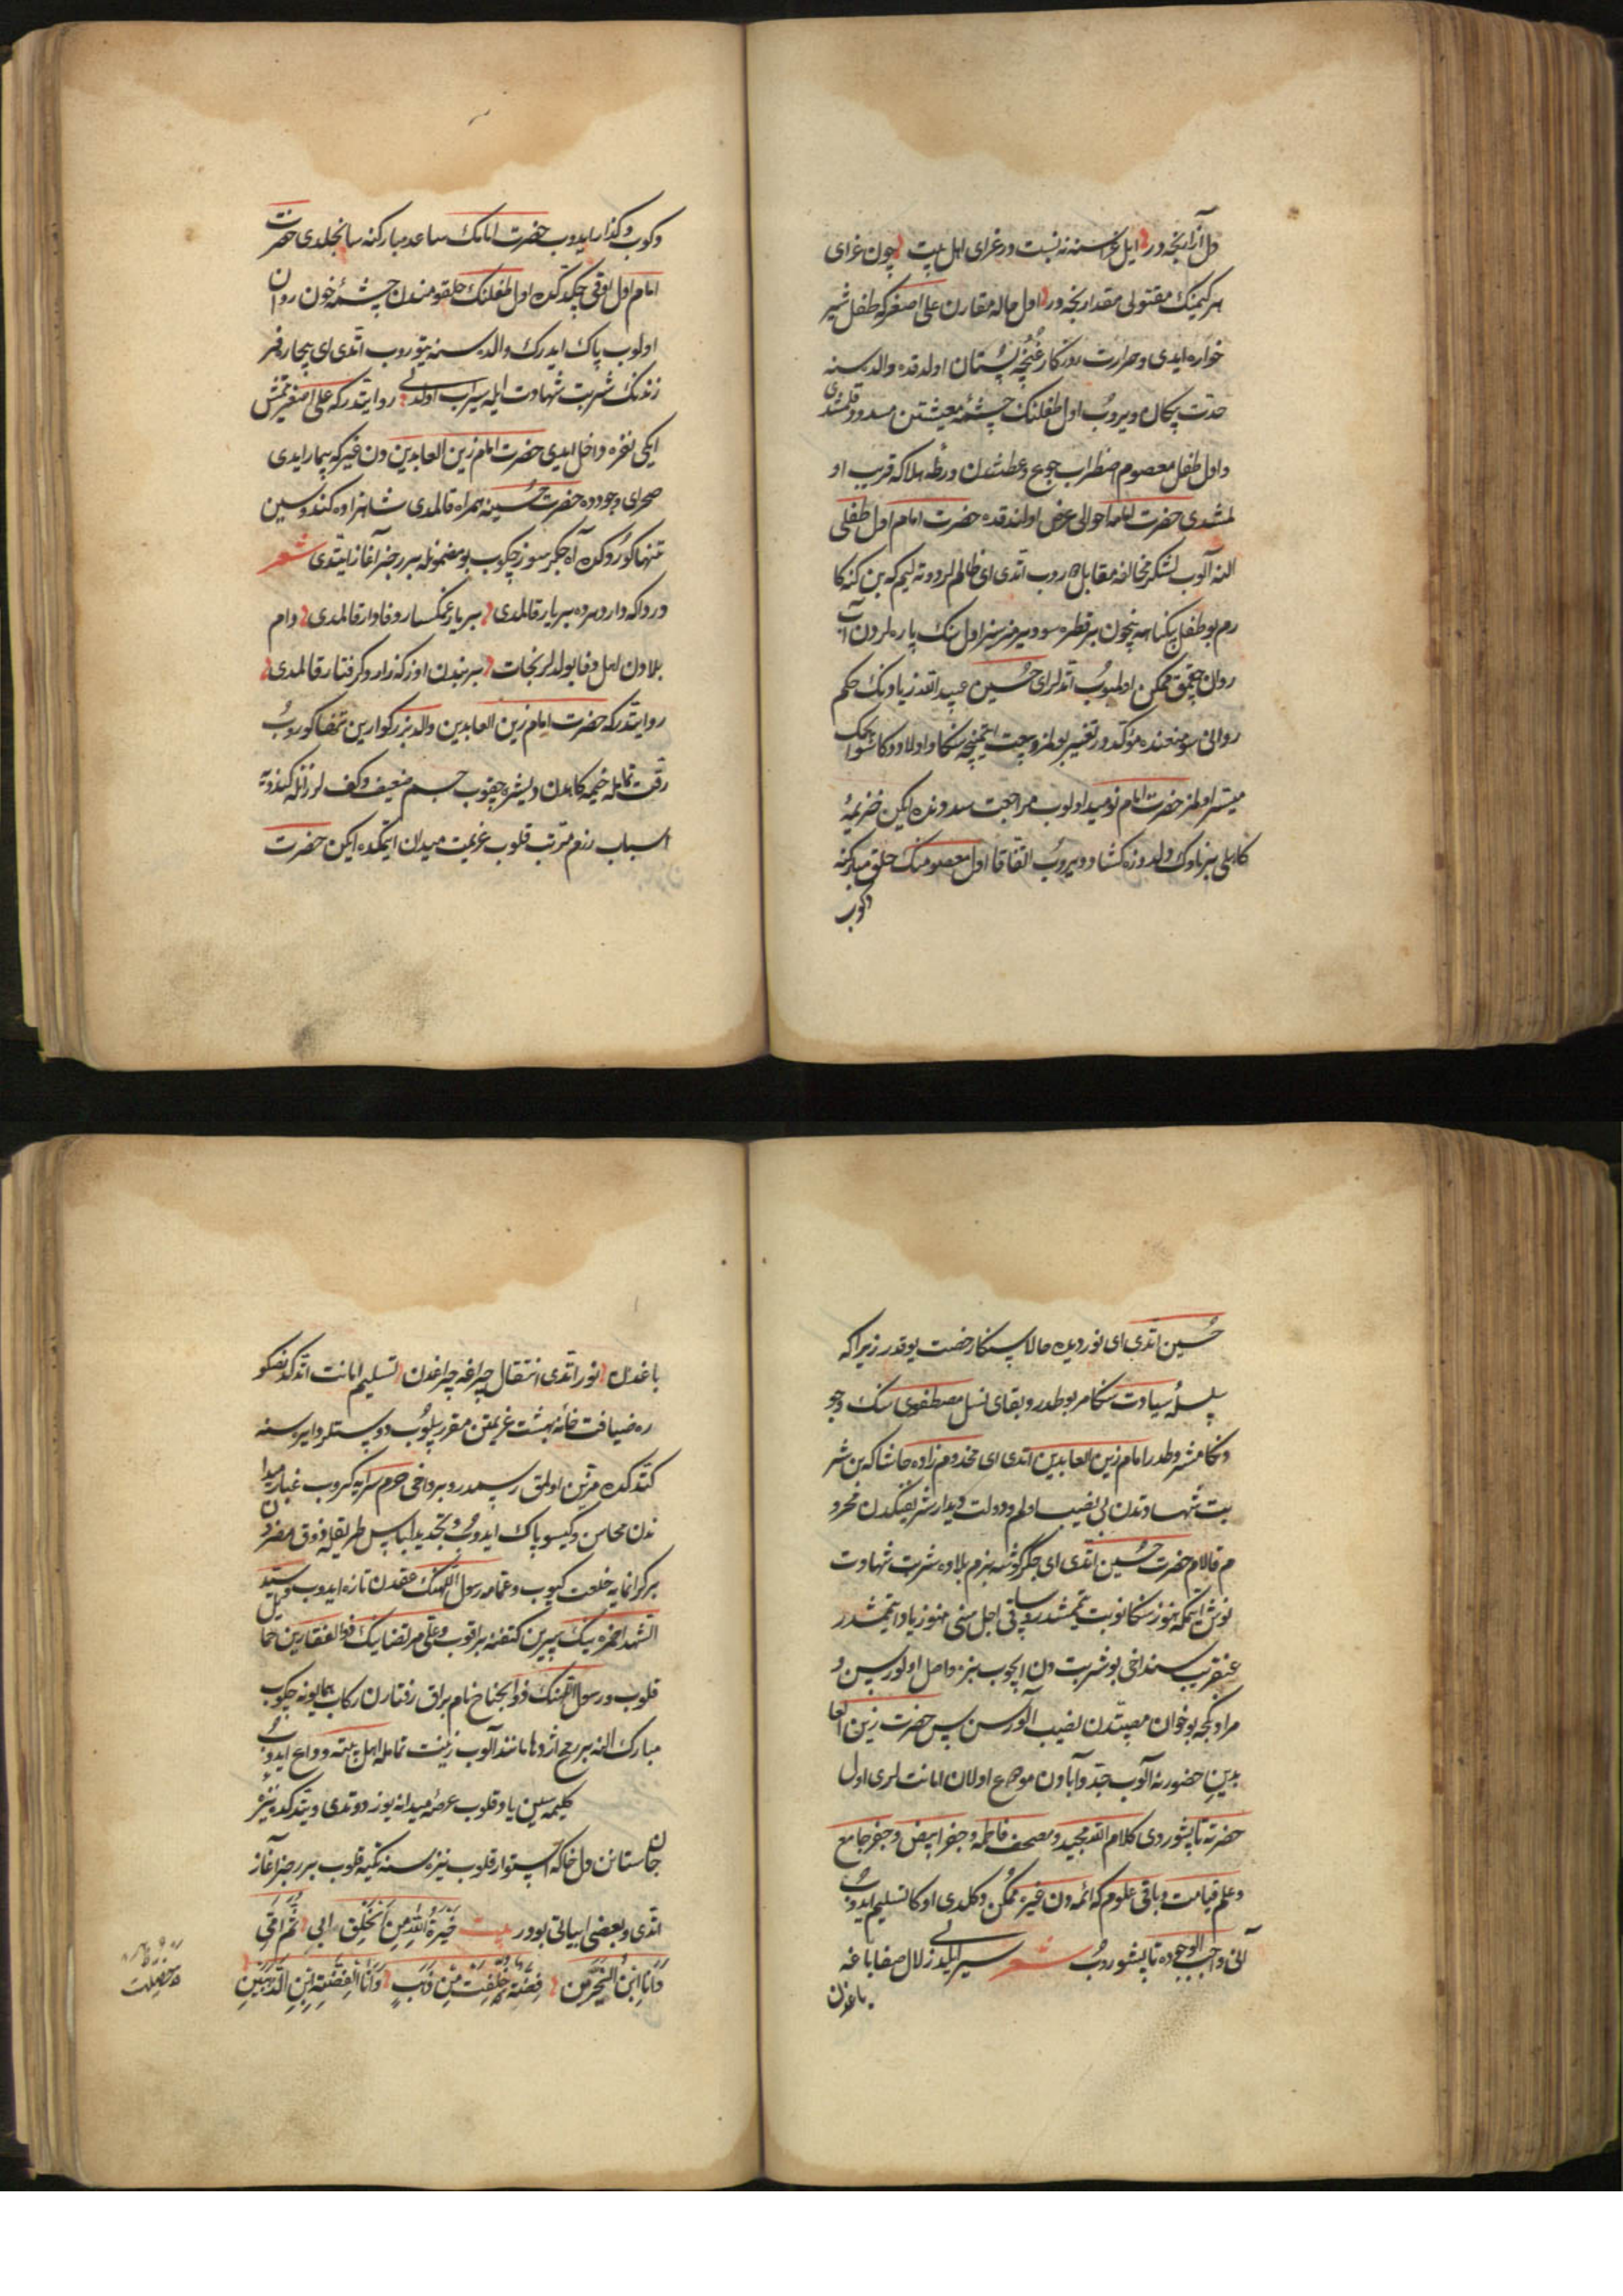 دل آزارنجه در ایل نسبت در عزای اهل بیت چون عزای
هر کیمنک مقتولی مقدارنجه در اول حاله مقارن علی اصغر که طفل شیر
خواره ایدی و حرارت روزکار غنچهٔ پستان اولدقده والده سنه
حدت پیکان ویروب اول طفلنک چشمهٔ معیشتن مسدود قلمشدی
و اول طفل معصوم اضطراب جوع و عطشدن ورطهٔ هلاکه قریب او
لمشدی حضرت امامه احوالی عرض اولندقده حضرت امام اول طفلی
النه آلوب لشکر مخالفه مقابل دوروب اتدی ای ظالملر دوته لیم که بن کنه کا
رم بو طفل بیکناهه نیچون بر قطره سو ویرمزسز اول سنک پاره لردن آب
روان چقمق ممکن اولمیوب اتدیلر ای حسین عبید الله زیادنک حکم
روانی سو منعنده مؤکددر تغییر بولمز و بیعت ایتمینجه سکا و اولادوکا سو ایچمک
میسر اولمز حضرت امام نومید اولوب مراجعت صددنده ایکن خزیمهٔ
کاهلی بر ناوک دلدوزه کشاد ویروب اتفاقا اول معصومنک حلق مبارکنه
دکوب
دکوب و کذار ایدوب حضرت امامک ساعد مبارکنه سانجلدی حضرت
امام اول اوقی چکدکده اول طفلنک حلقومندن چشمهٔ خون روان
اولوب پاک ایدرک والده سنه یتوروب اتدی ای بیچاره فر
زندنک شربت شهادت ایله سیراب اولدی روایتدر که علی اصغر یتمش
ایکی نفره داخل ایدی حضرت امام زین العابدین دن غیر که بیمار ایدی
صحرای وجودده حضرت حسینه همراه قالمدی شاهزاده کندوسین
تنها کوردوکده آه جکر سوز چکوب بو مضمونله بر رجز آغاز ایتدی شعر
دردا که دار دهرده بر یار قالمدی بر یار غمکسار وفادار قالمدی دام
بلادن اهل وفا بولدیلر نجات بر بندن اوزکه زار و کرفتار قالمدی
روایتدر که حضرت امام زین العابدین والد بزرکوارین تنها کوروب
رقت تمامله خیمه کاهدن طشره چقوب جسم ضعیف و کف لرزانله کندویه
اسباب رزم مرتب قلوب عزیمت میدان ایتمکده ایکن حضرت
حسین اتدی ای نور دیده حالا سکا رخصت یوقدر زیرا که
سلسلهٔ سیادت سکا مربوطدر و بقای نسل مصطفوی سنک وجو
دنکا مشروطدر امام زین العابدین اتدی ای مخدوم زاده حاشا که بن شر
بت شهادتدن بی نصیب اولم و دولت دیدار شریفکدن محرو
م قالام حضرت حسین اتدی ای جکر کوشه بزم بلاده شربت شهادت
نوش ایتمکه هنوز سکا نوبت یتمشدر و ساقی اجل سنی هنوز یاد ایتمشدر
عنقریب سن داخی بو شربت دن ایچوب بزه واصل اولورسن و
مرادکجه بو خوان مصیبتدن نصیب آلورسن پس حضرت زین العا
بدین حضورنه آلوب جد و آبادن موضع اولان امانتلری اول
حضرته تابشوردی کلام الله مجید و مصحف فاطمه و جفر ابیض و جفر جامع
و علم قیامت و باقی علوم که ائمه دن غیره ممکن دکلدی اوکا تسلیم ایدوب
آنی واجب الوجوده تابشوروب شعر سیر ایلدی زلال صفا باغه
باغدن
باغدن نور اتدی انتقال چراغه چراغدن تسلیم امانت اتدکدنصکره
ره ضیافت خانهٔ بهشت عزیمتن مقرر بیلوب دوستلر دایره سنه
کتدکده مزین اولمق رسمدر و بر داخی حرم سرایه کیروب غبار میدا
ندن محاسن و کیسو پاک ایدوب و تجدید لباس طریقله
بر کرانمایه خلعت کیوب و عمامه رسول اللهنک عقدن تازه ایدوب و سید
الشهدا حمزه نیک سپرین کتفنه براقوب و علی مرتضانیک ذوالفقارین حما
یل
قلوب و رسول اللهنک ذوالجناح نام براق رفتارن رکاب همایونه چکوب
مبارک النه بر رمح اژدها مانند آلوب زینت تمامله اهل بیته وداع ایدوب
کلیمه سین یاد قلوب عرصهٔ میدانه یوز دوتدی و یتدکده نیزهٔ
جان ستانن دل خاکه استوار قلوب نیزه سنه تکیه قلوب بر رجز آغاز
اتدی و بعضی ابیاتی بودر بیت خَیرَةُ الله مِنَ الخَلقِ اَبی ثُمَّ اُمّی
وَاَنا ابنُ الخیرتین فِضَّةٌ خُلِقَت مِن ذَهَب وَاَنا الفِضَّةُ ابنُ الذَّهَبَین